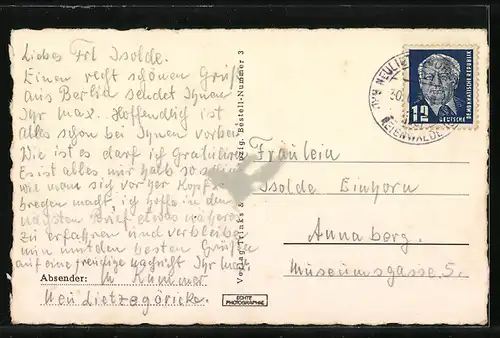 Liebes Frl Isolde.
Einen recht schönen Gruß
aus Berlin sendet Ihnen
Ihr Max. Hoffendlich ist
alles schon bei Ihnen vorbei
Wie ist es darf ich Gratulieren
Es ist alles nur halb so schlim
wie man sich vorher Kopfze
brechen macht, ich hoffe in dem
nägsten Brief etwas näheres
zu erfahren und verbleibe
nun mit den besten Grüßen
auf eine freudige nachricht Ihr Max
Absender: M Kummer
Neu Lietzegöricke.
Verlag Trinks & Leipzig. Bestell-Nummer 3
ECHTE
PHOTOGRAPHIE
NEULIE
30.
FREIENWALDE
12
DEUTSCHE
DEMOKRATISCHE REPUBLIK
Fräulein
Isolde Einhorn
Annaberg.
Museumsgasse 5.